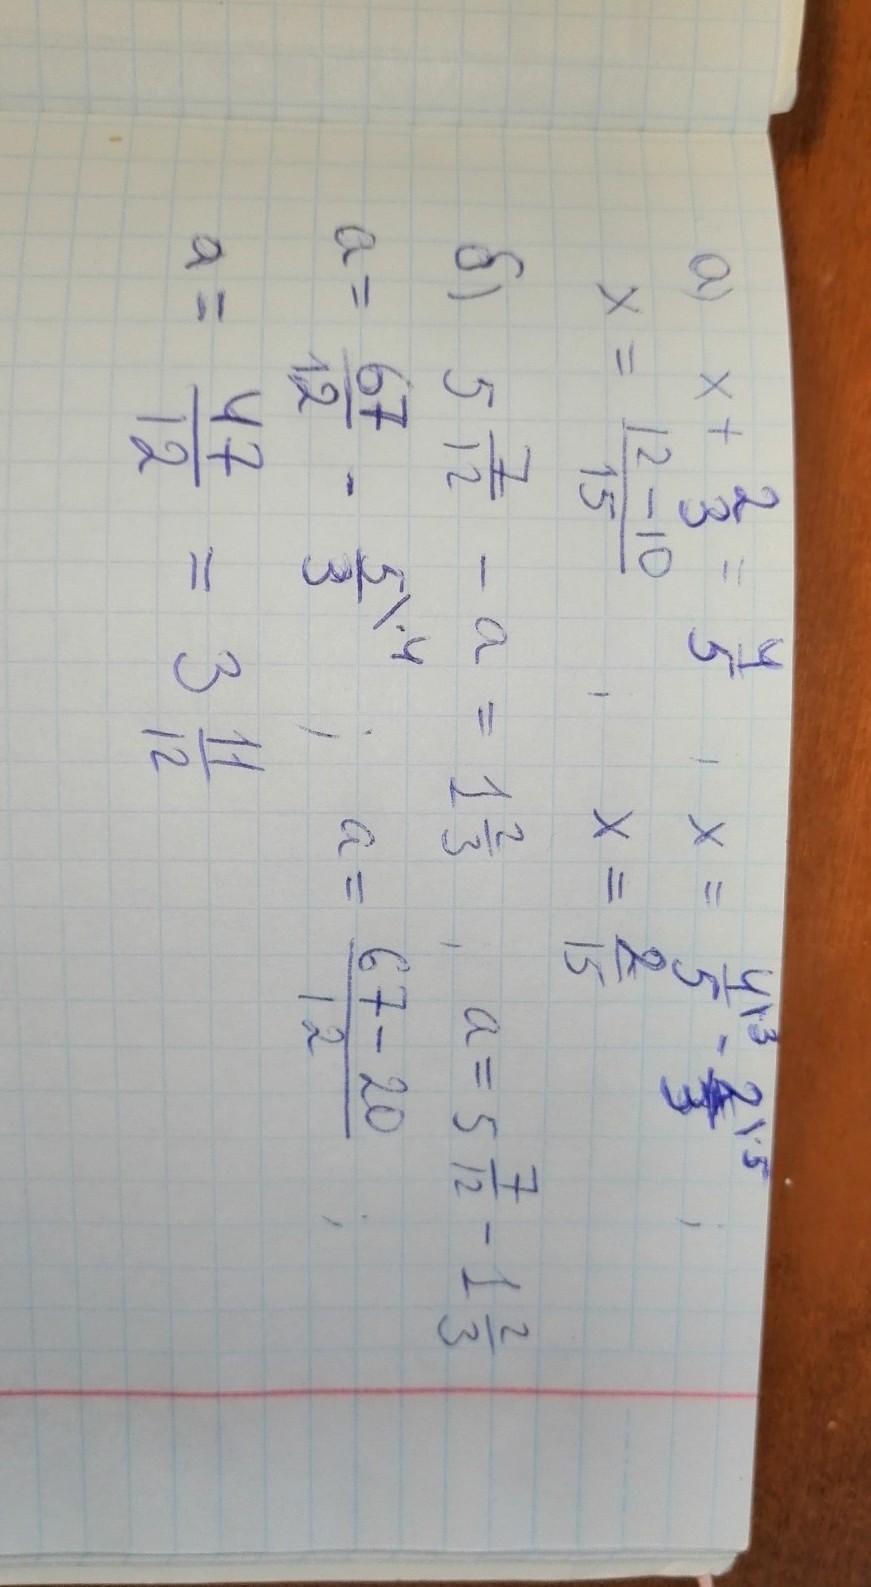 а) x + 2/3 = 4/5 , x = 4/5\·3 - 2/3\·5 ;
x = (12 - 10)/15 , x = 2/15
б) 5 7/12 - a = 1 2/3 , a = 5 7/12 - 1 2/3
a = 67/12 - 5/3\·4 ; a = (67 - 20)/12 ;
a = 47/12 = 3 11/12